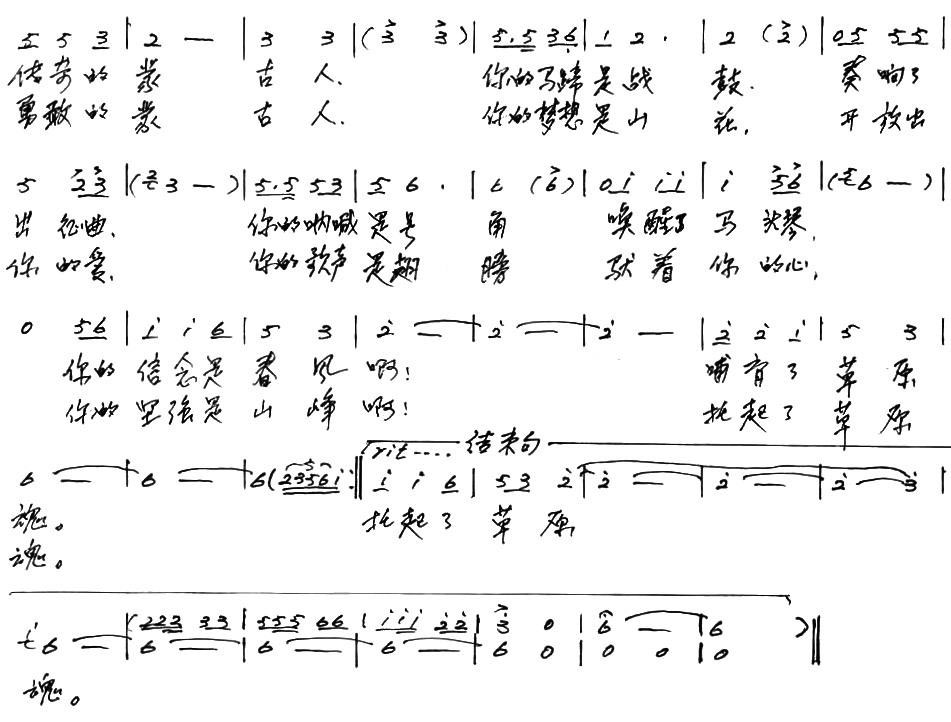 5 5 3 | 2 — | 3 3 | (3 3) | 5.5 3 6 | 1 2 . | 2 (2) | 0 5 5 5 |
传奇的 蒙 古 人. 你的马蹄 是战 鼓. 奏响了
勇敢的 蒙 古 人. 你的梦想 是山 花, 开放出
5 2 3 | (3 — ) | 5.5 5 3 | 5 6 . | 6 (6) | 0 i i i | i 5 6 | (6 — ) |
出征曲, 你的呐喊 是号 角 唤醒了 马头琴,
你的爱, 你的歌声 是翅 膀 驮着 你的心,
0 5 6 | i i 6 | 5 3 | 2 — | 2 — | 2 — | 2 2 i | 5 3 |
你的 信念是 春风 啊! 哺育了 草原
你的 坚强是 山峰 啊! 托起了 草原
rit.... 结束句
6 — | 6 — | 6 (2 3 5 6 i :‖ i i 6 | 5 3 2 | 2 — | 2 — | 2 3 |
魂。 托起了 草原
魂。
i 6 — | (2 2 3 3 3 | 5 5 5 6 6 | i i i 2 2 | 3 0 | 6 — | 6 )‖
6 — | 6 — | 6 — | 6 0 | 0 0 | 0
魂。